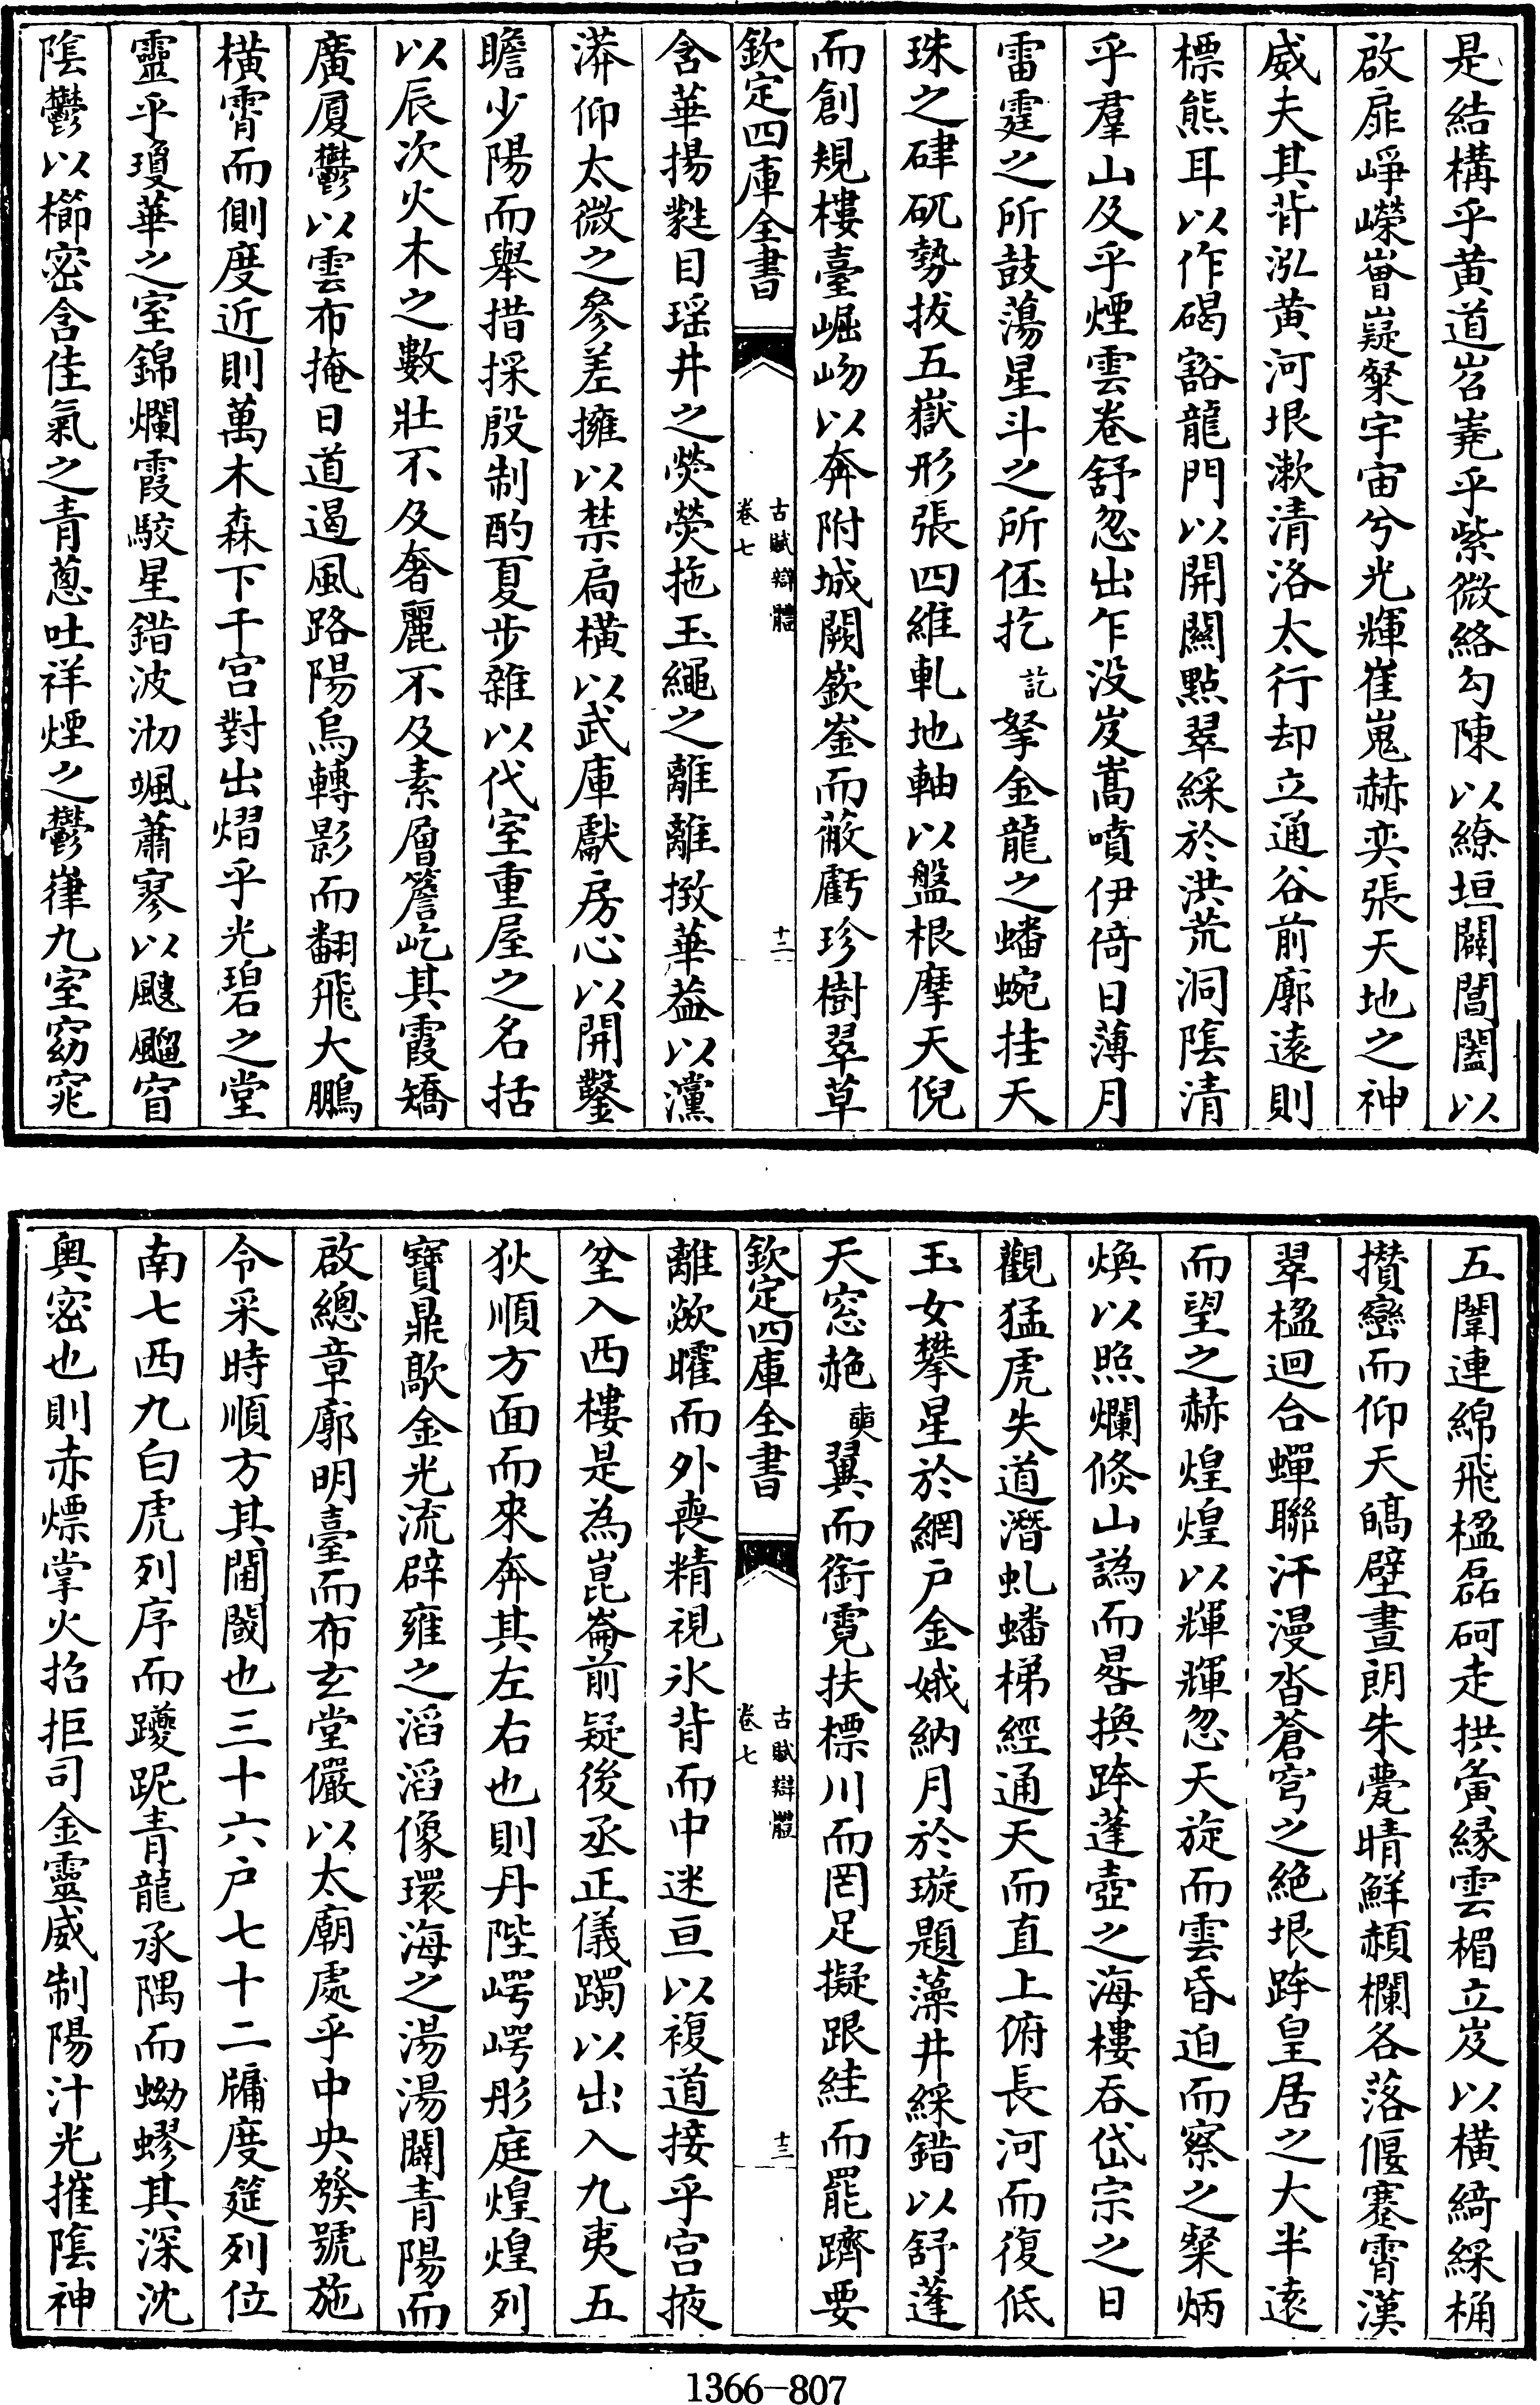 是結構乎黄道岧嶤乎紫微絡勾陳以繚垣闢閶闔以
啟扉崢嶸嶒嶷粲宇宙兮光輝崔嵬赫奕張天地之神
威夫其背泓黄河垠漱清洛太行却立通谷前廓遠則
標熊耳以作碣豁龍門以開闗點翠綵於洪荒洞隂清
乎羣山及乎煙雲卷舒忽出乍没岌嵩噴伊倚日薄月
雷霆之所鼓蕩星斗之所伾扢訖拏金龍之蟠蜿挂天
珠之硉矹勢拔五嶽形張四維軋地軸以盤根摩天倪
而創規樓臺崛岉以奔附城闕嶔崟而蔽虧珍樹翠草
欽定四庫全書
古賦辯體
卷七
十二
含華揚蕤目瑶井之熒熒拖玉繩之離離撽華葢以灙
漭仰太微之參差擁以禁扃横以武庫獻房心以開鑿
瞻少陽而舉措採殷制酌夏步雜以代室重屋之名括
以辰次火木之數壯不及奢麗不及素層簷屹其霞矯
廣厦鬱以雲布掩日道遏風路陽烏轉影而翻飛大鵬
横霄而側度近則萬木森下千宫對出熠乎光碧之堂
靈乎瓊華之室錦爛霞駮星錯波沏颯蕭寥以飀飀窅
隂鬱以櫛密含佳氣之青蔥吐祥煙之鬱嵂九室窈窕
五闈連綿飛楹磊砢走拱夤縁雲楣立岌以横綺綵桷
攅巒而仰天皜壁晝朗朱甍晴鮮赬欄各落偃蹇霄漢
翠楹迴合蟬聯汗漫沓蒼穹之絶垠跨皇居之大半遠
而望之赫煌煌以輝輝忽天旋而雲昏迫而察之粲炳
煥以照爛倐山譌而晷換跨蓬壺之海樓吞岱宗之日
觀猛虎失道潛虬蟠梯經通天而直上俯長河而復低
玉女攀星於網户金娥納月於璇題藻井綵錯以舒蓬
天窓赩奭翼而銜霓扶標川而罔足擬跟絓而罷躋要
欽定四庫全書
古賦辯體
卷七
十三
離歘曜而外喪精視氷背而中迷亘以複道接乎宫掖
坌入西樓是為崑崙前疑後丞正儀躅以出入九夷五
狄順方面而來奔其左右也則丹陛崿崿彤庭煌煌列
寶鼎歊金光流辟雍之滔滔像環海之湯湯闢青陽而
啟總章廓明臺而布玄堂儼以太廟處乎中央發號施
令采時順方其閫閾也三十六户七十二牖度筵列位
南七西九白虎列序而躨跜青龍承隅而蚴蟉其深沈
奥密也則赤熛掌火招拒司金靈威制陽汁光摧隂神
1366-807